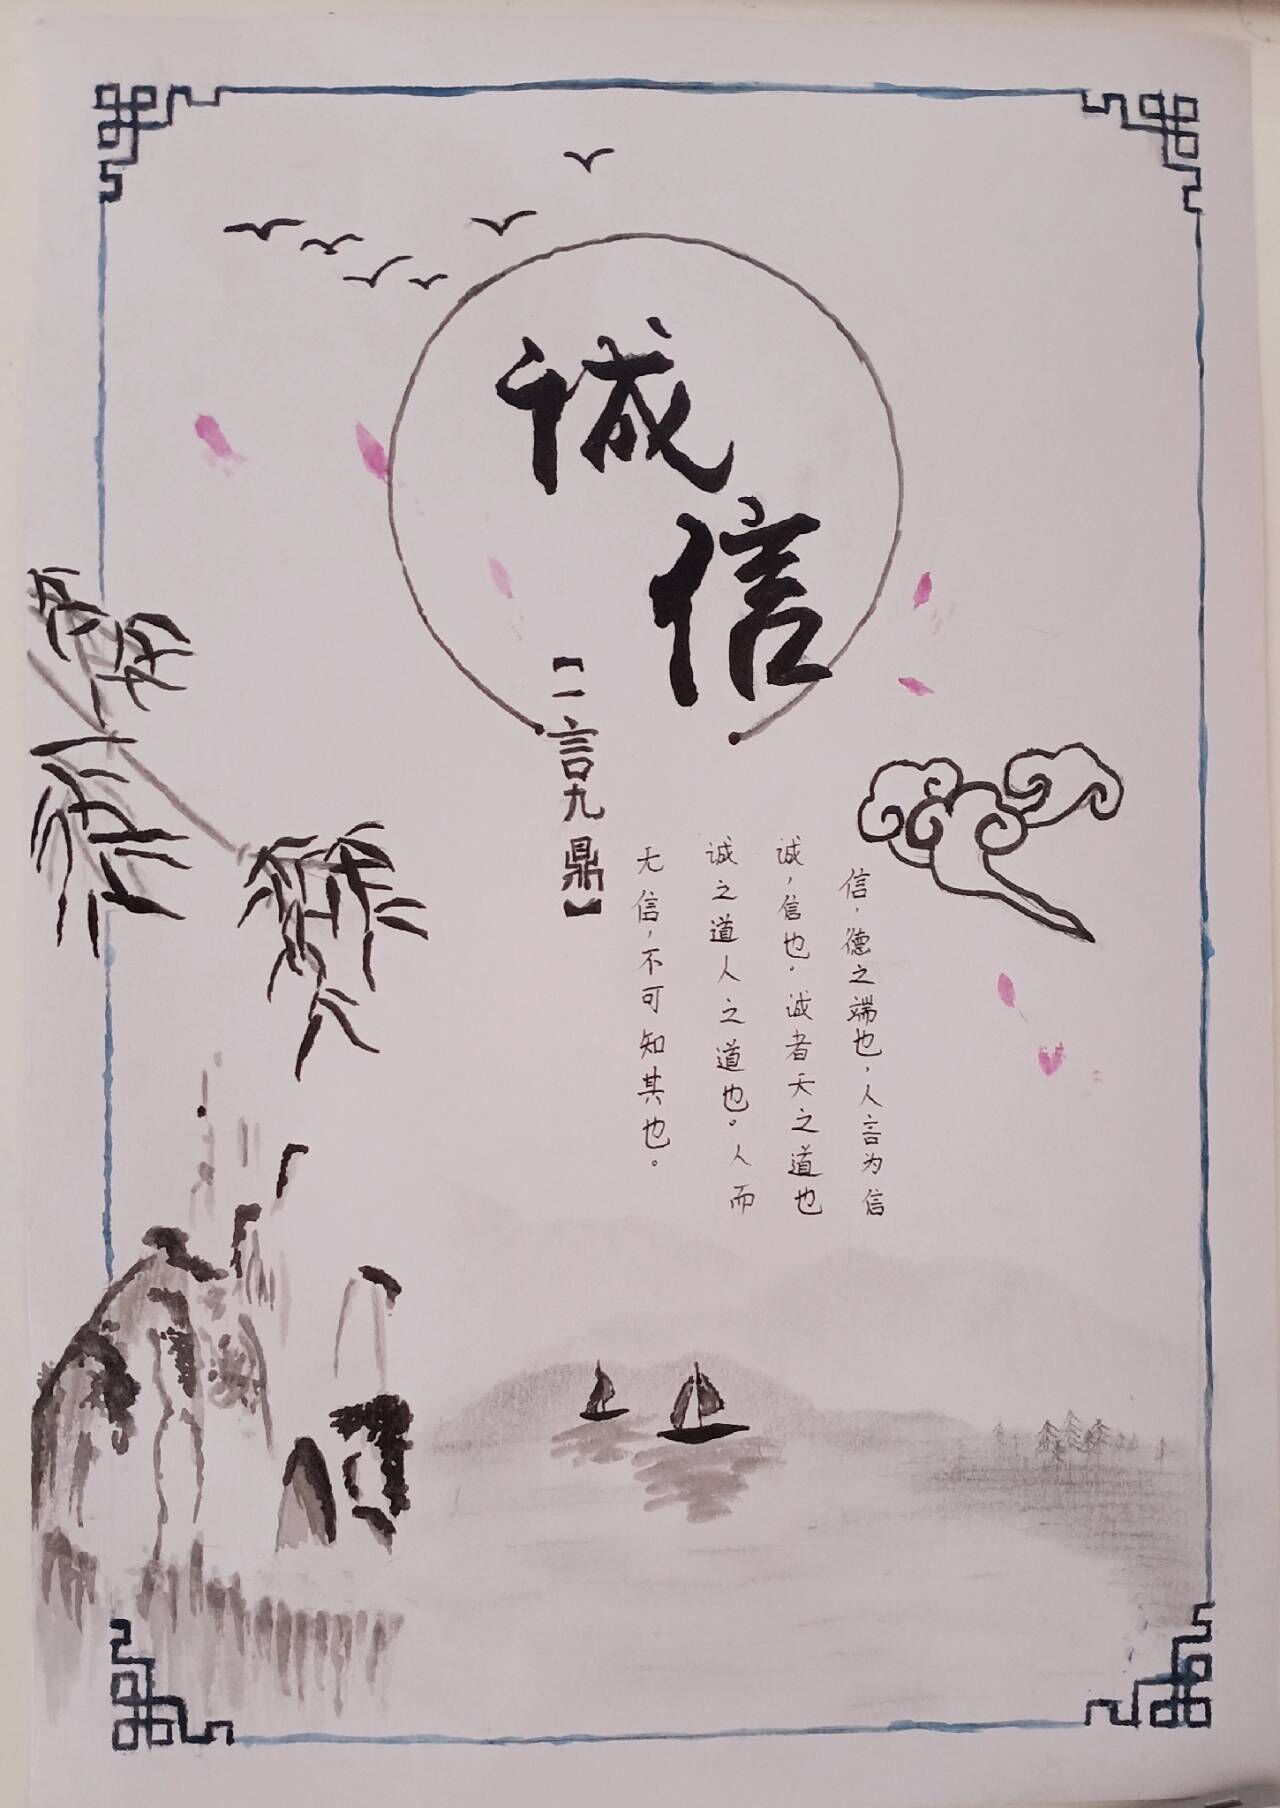 诚
信
【一言九鼎】
信,德之端也,人言为信
诚,信也.诚者天之道也
诚之道人之道也。人而
无信,不可知其也。